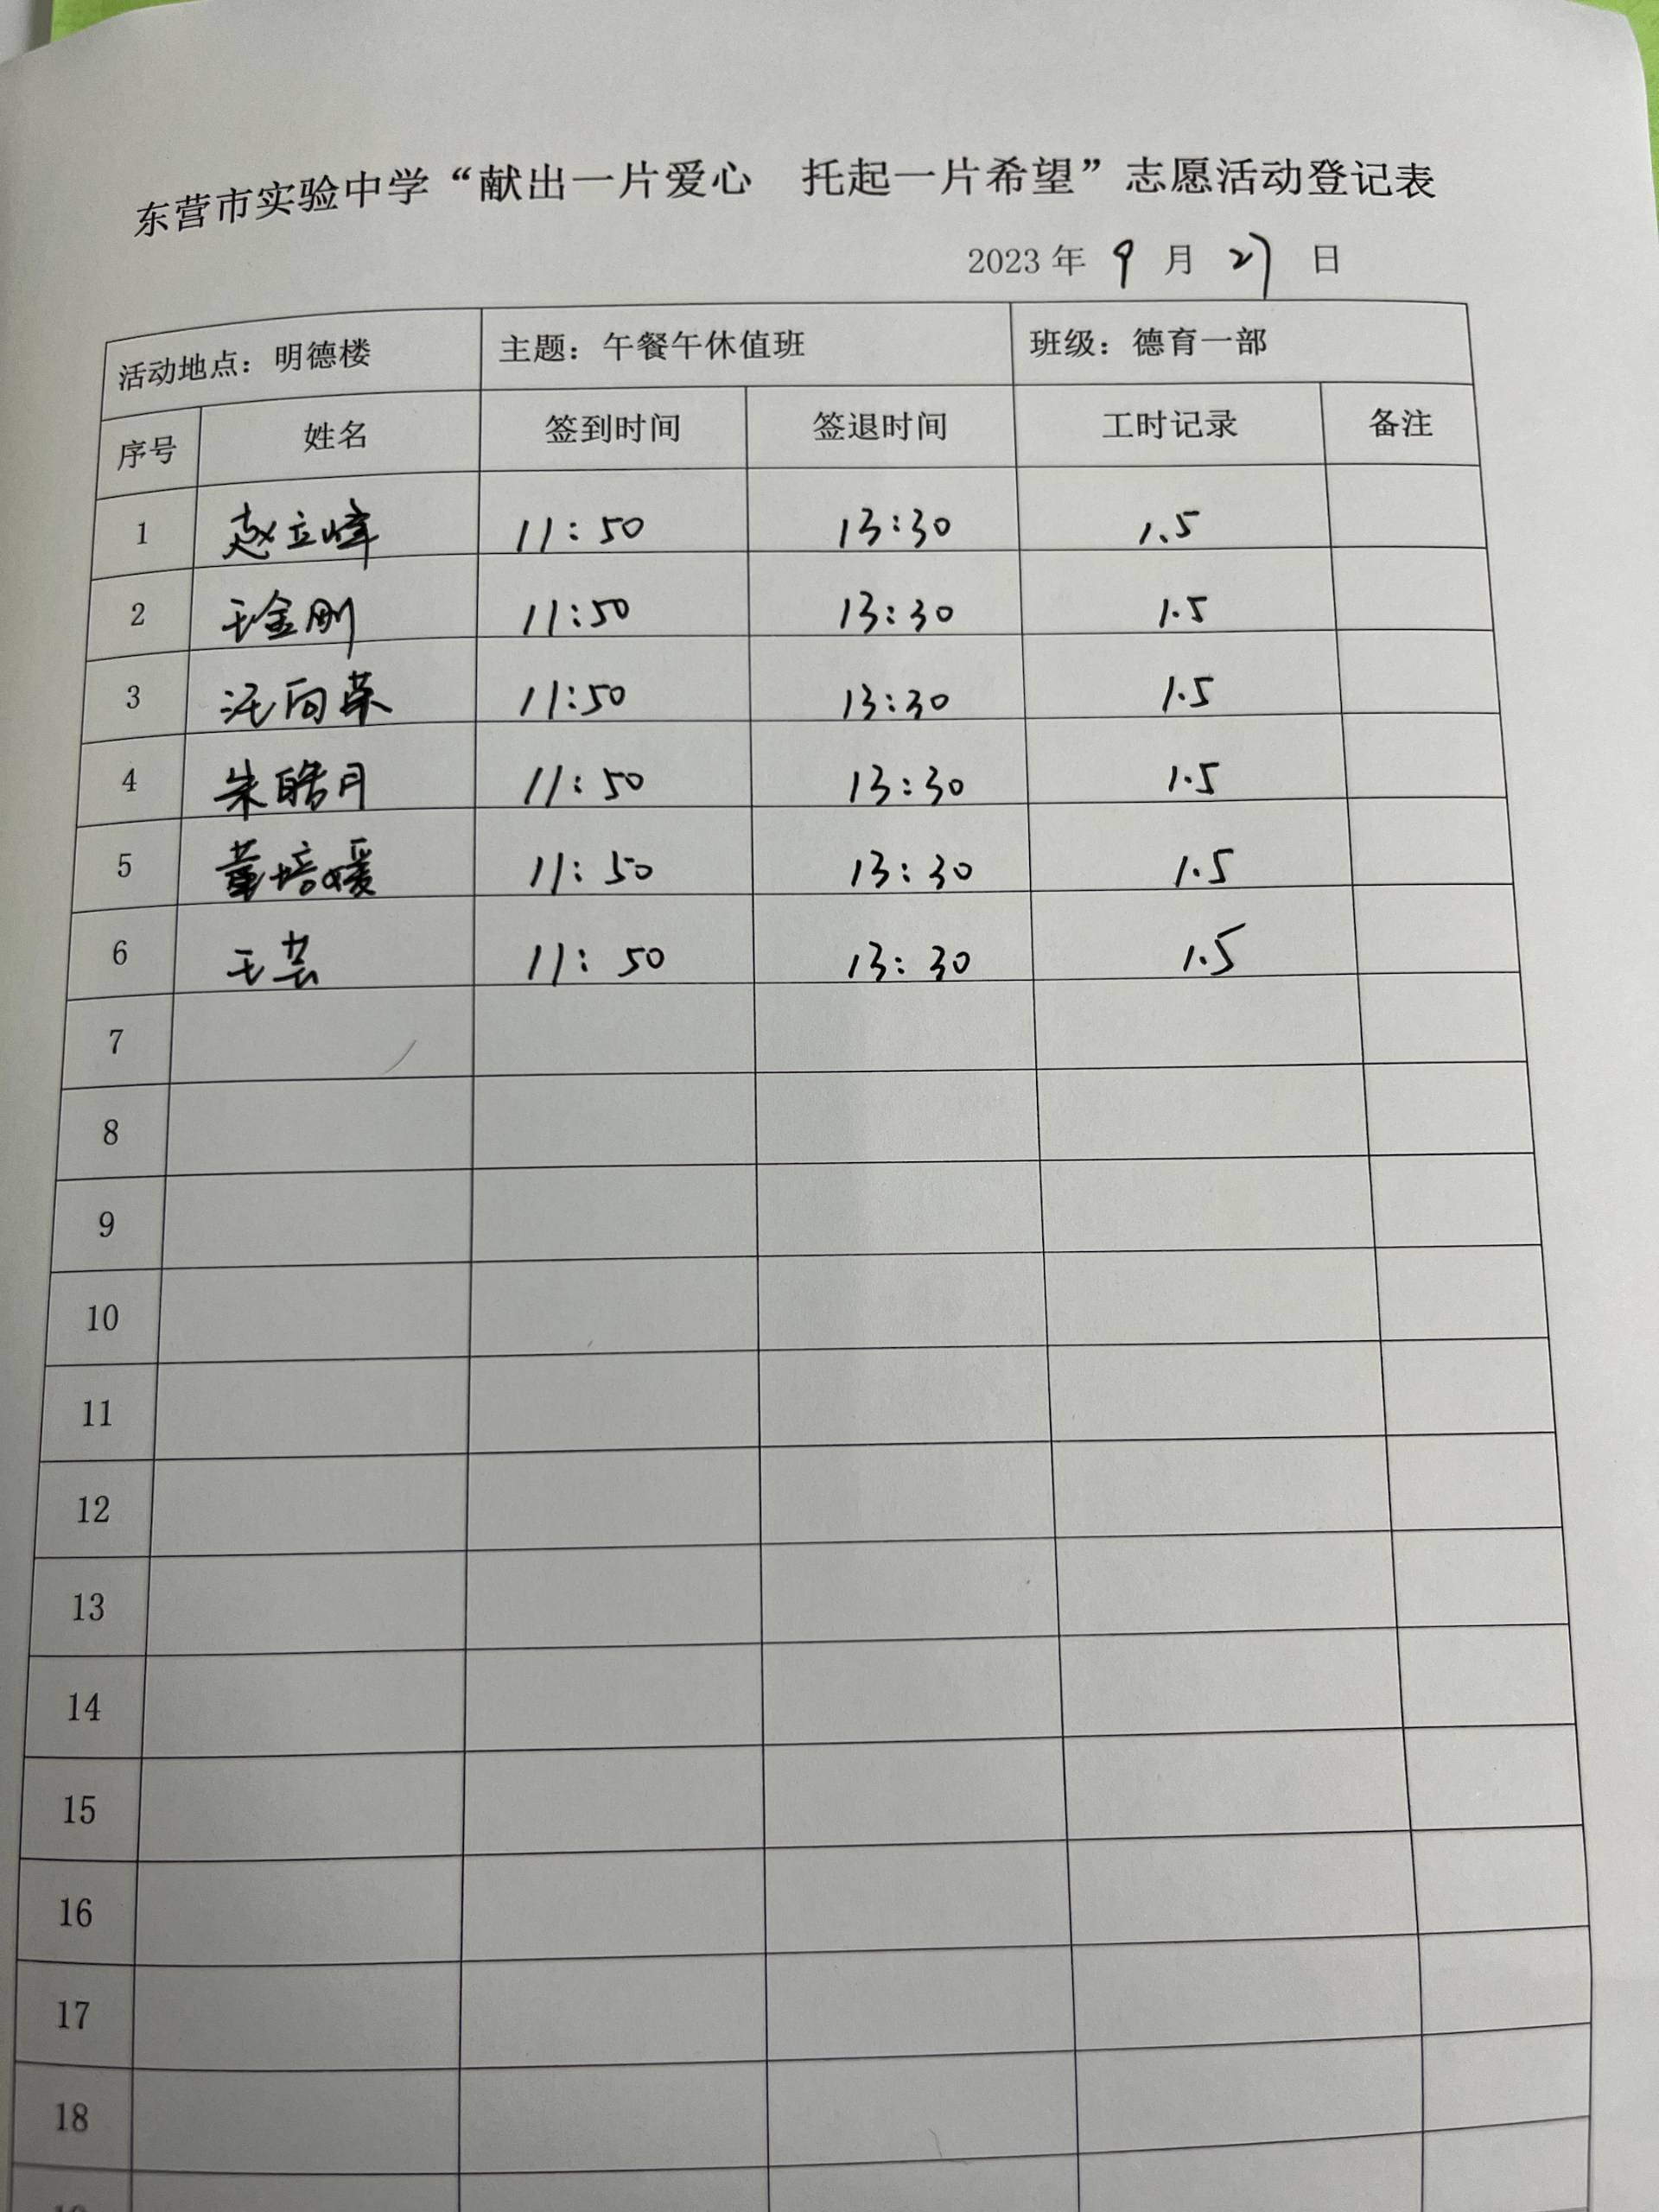 东营市实验中学“献出一片爱心 托起一片希望”志愿活动登记表
2023 年 9 月 27 日
活动地点：明德楼 主题：午餐午休值班 班级：德育一部
序号 姓名 签到时间 签退时间 工时记录 备注
1 赵立峰 11:50 13:30 1.5
2 王金刚 11:50 13:30 1.5
3 汪向荣 11:50 13:30 1.5
4 朱皓月 11:50 13:30 1.5
5 董培媛 11:50 13:30 1.5
6 王芸 11:50 13:30 1.5
7
8
9
10
11
12
13
14
15
16
17
18